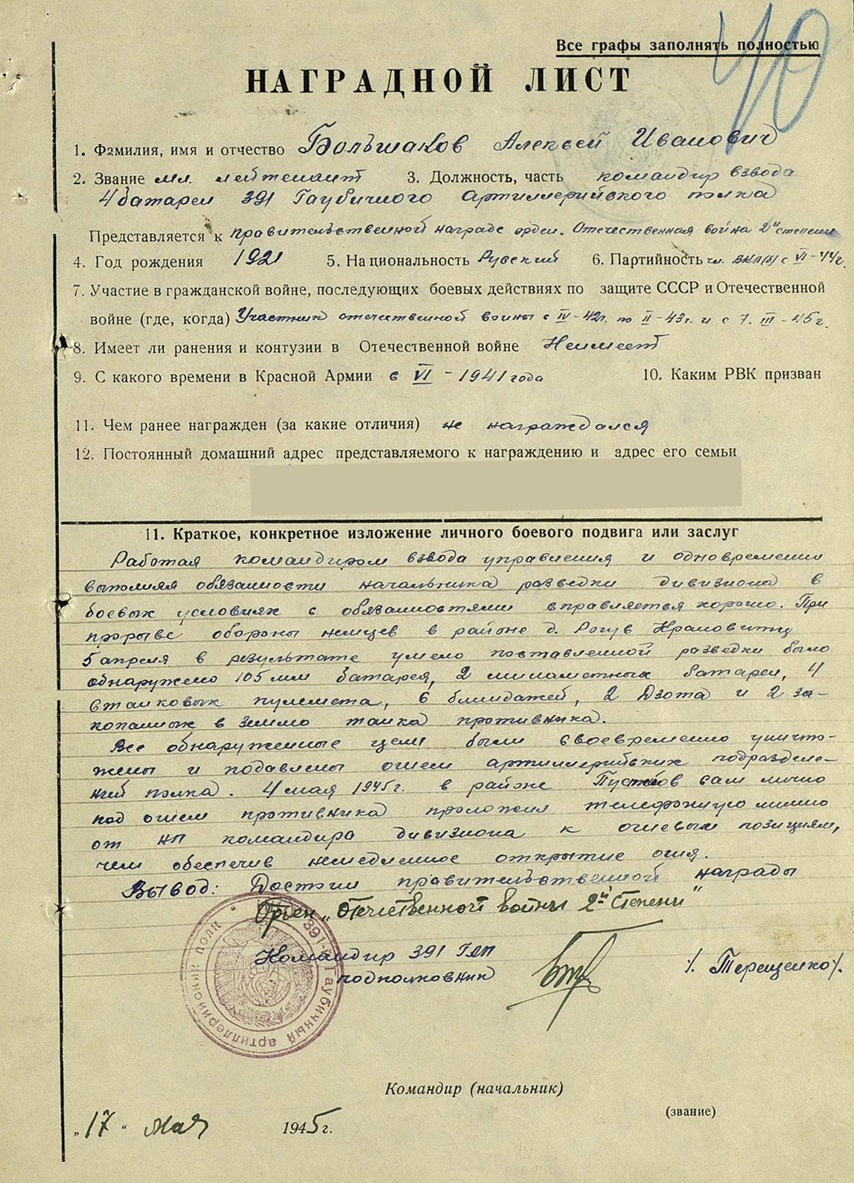 40
Все графы заполнять полностью
НАГРАДНОЙ ЛИСТ
1. Фамилия, имя и отчество Большаков Алексей Иванович
2. Звание мл. лейтенант 3. Должность, часть командир взвода
4 батареи 391 Гаубичного Артиллерийского полка
Представляется к правительственной награде орден. Отечественная война 2ой степени
4. Год рождения 1921 5. Национальность Русский 6. Партийность чл. ВКП(б) с VI-44г.
7. Участие в гражданской войне, последующих боевых действиях по защите СССР и Отечественной
войне (где, когда) Участник отечественной войны с IV-42г. по II-43г. и с 7. III-45г.
8. Имеет ли ранения и контузии в Отечественной войне Неимеет
9. С какого времени в Красной Армии с VI-1941 года 10. Каким РВК призван
11. Чем ранее награжден (за какие отличия) не награждался
12. Постоянный домашний адрес представляемого к награждению и адрес его семьи
11. Краткое, конкретное изложение личного боевого подвига или заслуг
Работая командиром взвода управления и одновременно
выполняя обязанности начальника разведки дивизиона в
боевых условиях с обязанностями вправляется хорошо. При
прорыве обороны немцев в районе д. Рогув
5 апреля в результате умело поставленной разведки было
обнаружено 105 мм батарея, 2 минометных батареи, 4
станковых пулемета, 6 блиндажей, 2 Дзота и 2 за-
копанных в землю танка противника.
Все обнаруженные цели были своевременно уничто-
жены и подавлены огнем артиллерийских подразделе-
ний полка. 4 мая 1945г. в районе сам лично
под огнем противника проложил телефонную линию
от НП командира дивизиона к огневым позициям,
чем обеспечив немедленное открытие огня.
Вывод: Достоин правительственной награды
Орден "Отечественной войны 2ой Степени"
Командир 391 ГАП
подполковник /. Терещенко/.
391-й Гаубичный артиллерийский полк
Командир (начальник)
(звание)
"17" мая 1945г.